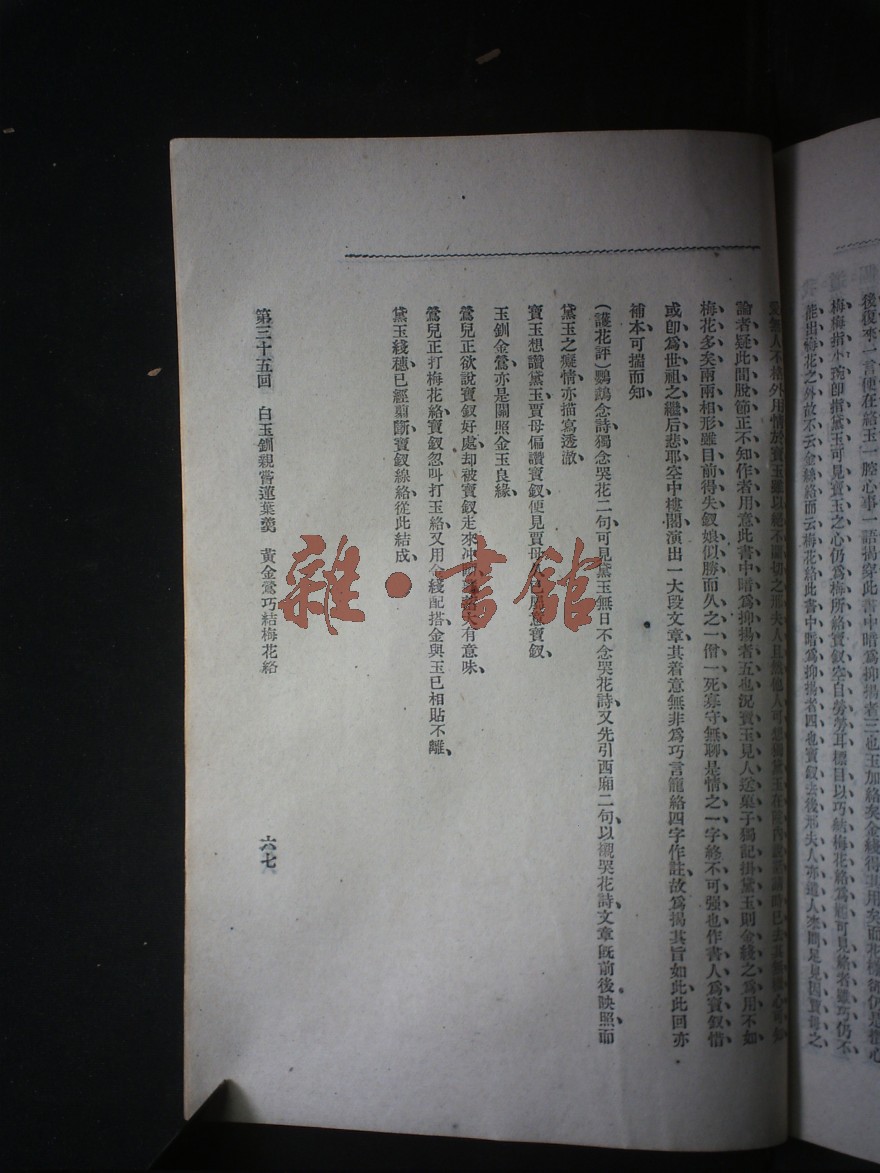 後復來一言便在絡玉一腔心事一語揭穿此書中暗爲抑揚者三也玉加絡矣金綫得其用矣而花樣仍是指心
梅梅指水 卽指黛玉可見寶玉之心仍爲梅所絡寶釵空自勞勞耳標目以巧結梅花絡爲題可見絡者雖巧仍不
能出梅花之外故不云金絲絡而云梅花絡此書中暗爲抑揚者四也寶釵去後邢夫人亦遣人來問足見因賈母之
無人不格外用情於寶玉雖以絕不關切之邢夫人且然他人可想獨黛玉在院內 已去其
論者疑此間脫節正不知作者用意此書中暗爲抑揚者五也況寶玉見人送菓子獨記掛黛玉則金綫之爲用不如
梅花多矣兩兩相形雖目前得失釵娘似勝而久之一僧一死寡守無聊是情之一字終不可强也作書人爲寶釵惜
或卽爲世祖之繼后悲耶空中樓閣演出一大段文章其着意無非爲巧言籠絡四字作註故爲揭其旨如此此回亦
補本可揣而知
(護花評)鸚鵡念詩獨念哭花二句可見黛玉無日不念哭花詩又先引西廂二句以襯哭花詩文章旣前後映照而
黛玉之癡情亦描寫透澈
寶玉想讚黛玉賈母偏讚寶釵便見賈母久已屬意寶釵
玉釧金鶯亦是關照金玉良緣
鶯兒正欲說寶釵好處却被寶釵走來冲 大有意味
鶯兒正打梅花絡寶釵忽叫打玉絡又用金綫配搭金與玉已相貼不離
黛玉綫穗已經翦斷寶釵線絡從此結成
第三十五回 白玉釧親嘗蓮葉羹 黃金鶯巧結梅花絡 六七
雜·書館